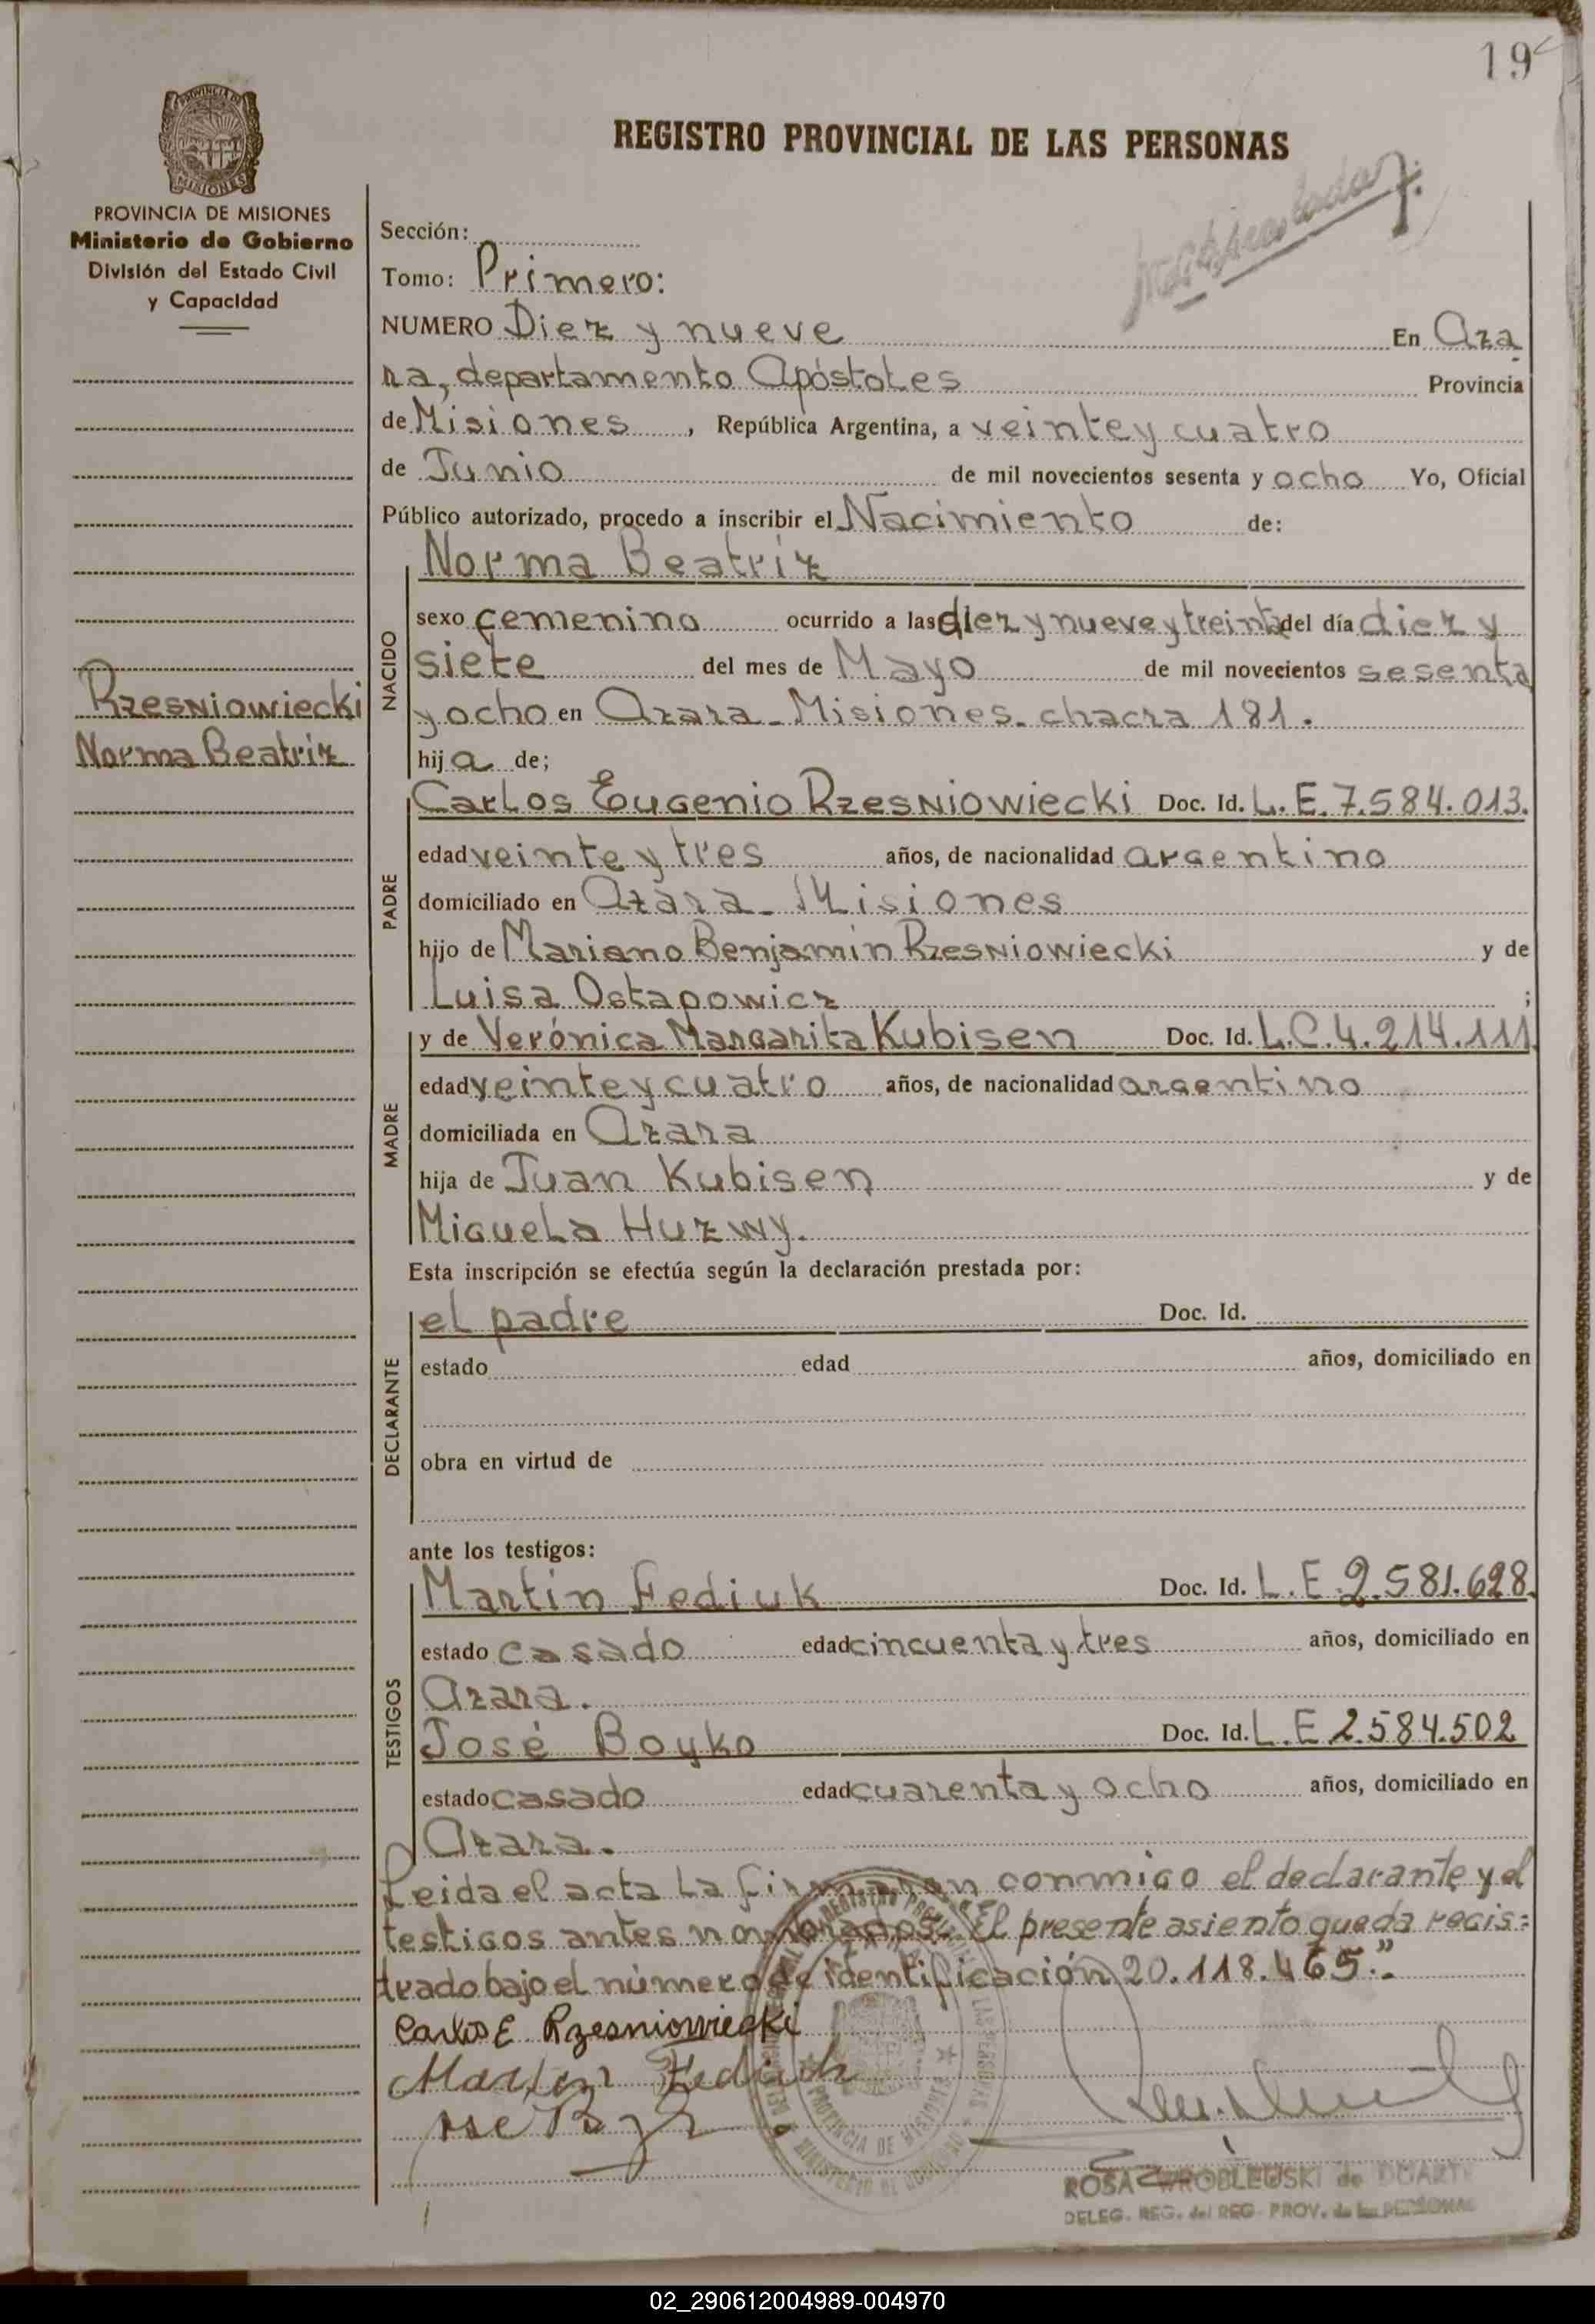 19
PROVINCIA DE MISIONES
Ministerio de Gobierno
División del Estado Civil
y Capacidad
Rzesniowiecki
Norma Beatriz
REGISTRO PROVINCIAL DE LAS PERSONAS
Sección:
Tomo: Primero:
NUMERO Diez y nueve En Aza
ra, departamento Apóstoles Provincia
de Misiones, República Argentina, a veinte y cuatro
de Junio de mil novecientos sesenta y ocho Yo, Oficial
Público autorizado, procedo a inscribir el Nacimiento de:
NACIDO
Norma Beatriz
sexo femenino ocurrido a las diez y nueve y treinta del día diez y
siete del mes de Mayo de mil novecientos sesenta
y ocho en Azara - Misiones - chacra 181.
hija de;
PADRE
Carlos Eugenio Rzesniowiecki Doc. Id. L. E. 7.584.013.
edad veinte y tres años, de nacionalidad argentino
domiciliado en Azara - Misiones
hijo de Mariano Benjamin Rzesniowiecki y de
Luisa Ostapowicz ;
MADRE
y de Verónica Margarita Kubisen Doc. Id. L.C. 4.214.111.
edad veinte y cuatro años, de nacionalidad argentino
domiciliada en Azara
hija de Juan Kubisen y de
Miguela Huzwy.
Esta inscripción se efectúa según la declaración prestada por:
DECLARANTE
el padre Doc. Id.
estado edad años, domiciliado en
obra en virtud de
ante los testigos:
TESTIGOS
Martin Fediuk Doc. Id. L. E. 2.581.628.
estado casado edad cincuenta y tres años, domiciliado en
Azara.
José Boyko Doc. Id. L. E 2.584.502
estado casado edad cuarenta y ocho años, domiciliado en
Azara.
Leida el acta la firmaron conmigo el declarante y el
testigos antes nombrados. El presente asiento queda regis=
trado bajo el número de identificación 20.118.465."
Carlos E Rzesniowiecki
Martin Fediuk
ROSA WROBLEUSKI de DUARTE
DELEG. REG. del REG. PROV. de las PERSONAS
PROVINCIA DE MISIONES
02_290612004989-004970